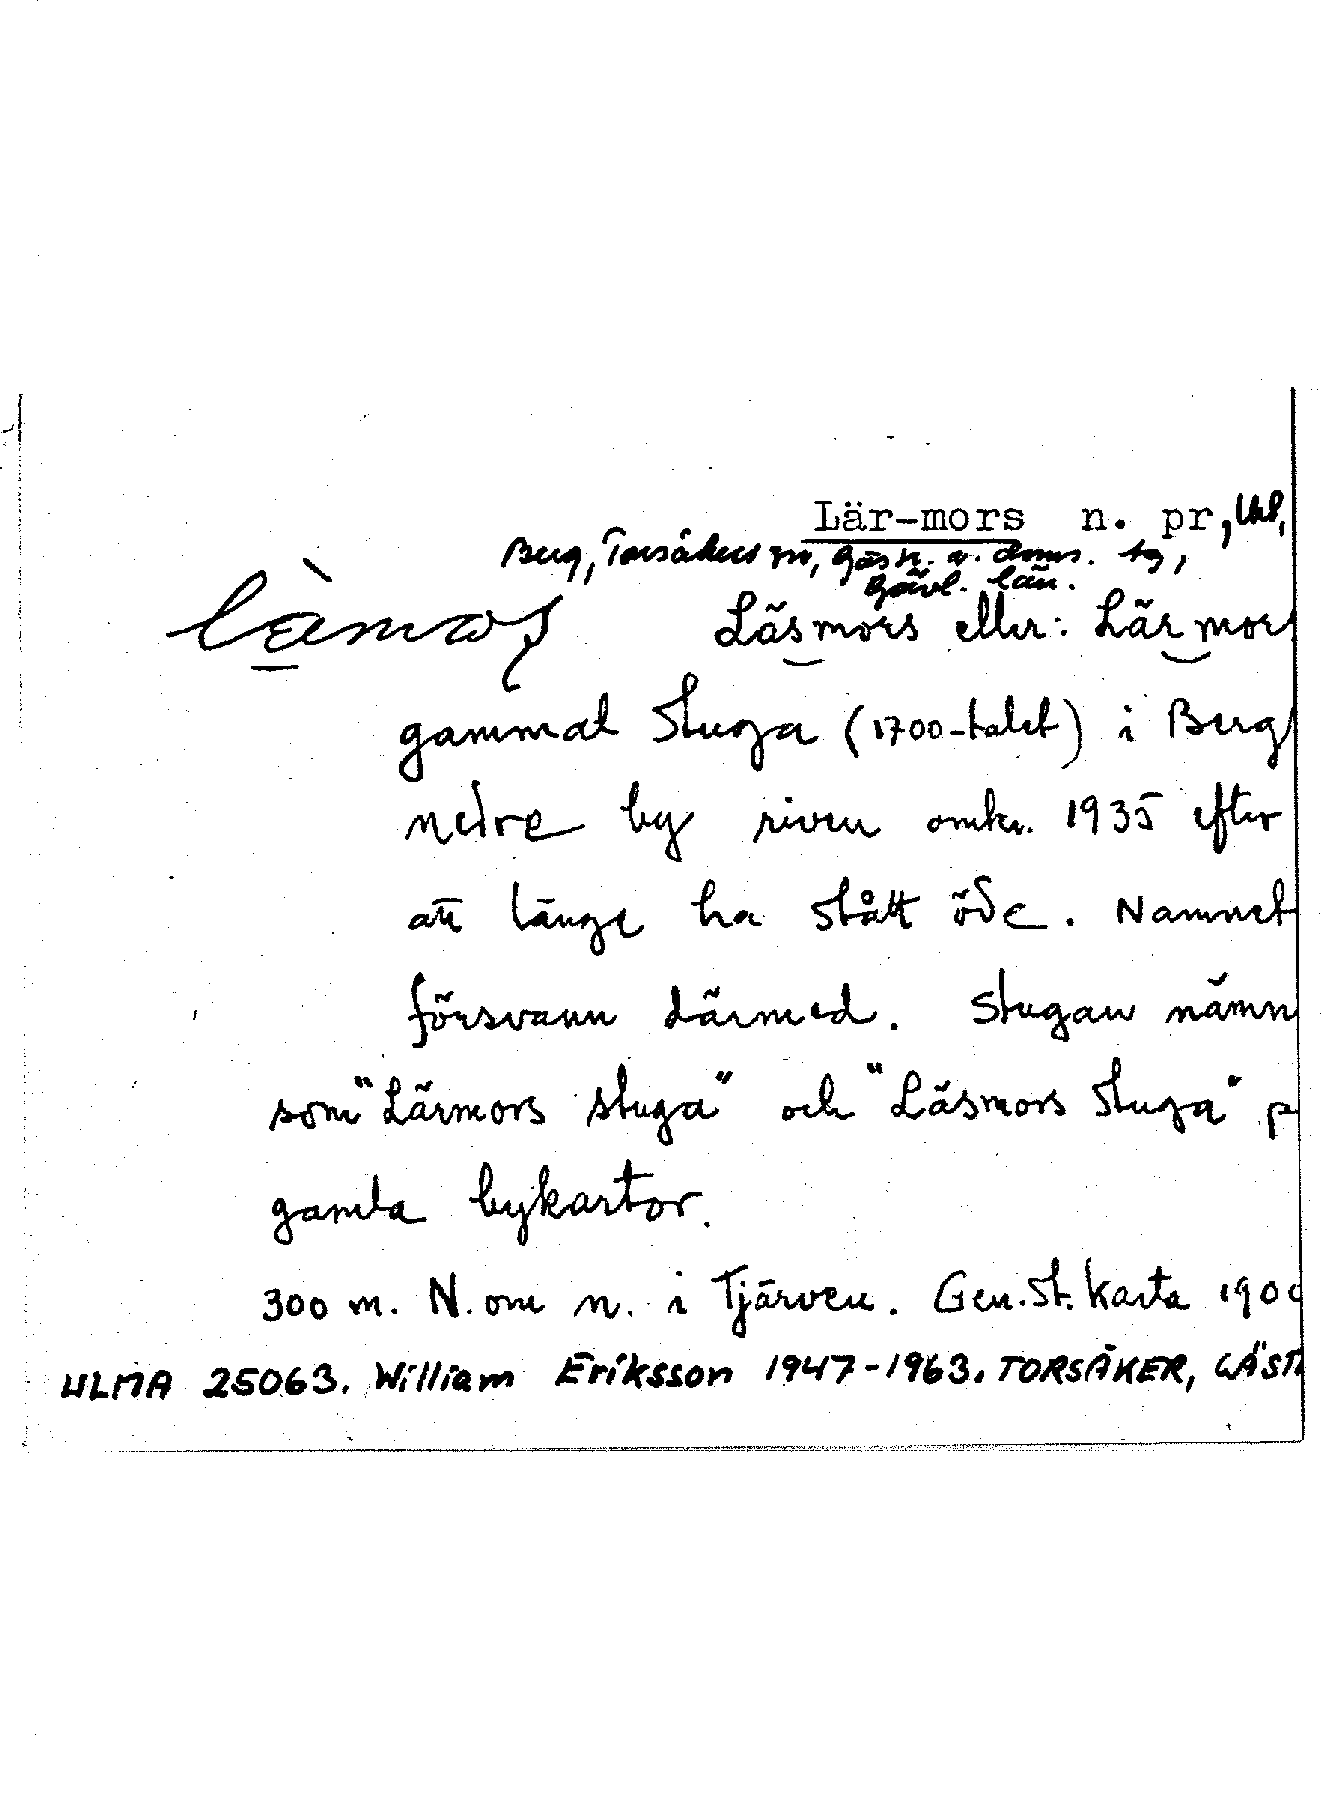 Lär-mors n. pr,
Berg, Torsåkers sn, Gästr. v. doms. tg,
Gävl. län.
Läsmors eller: Lärmors
gammal stuga (1700-talet) i Berg
nedre by riven omkr. 1935 efter
att länge ha stått öde. Namnet
försvann därmed. Stugan nämn
som "Lärmors stuga" och "Läsmors stuga" p
gamla bykartor.
300 m. N. om n. i Tjärven. Gen. St. Karta 190
ULMA 25063. William Eriksson 1947-1963. TORSÅKER, GÄST